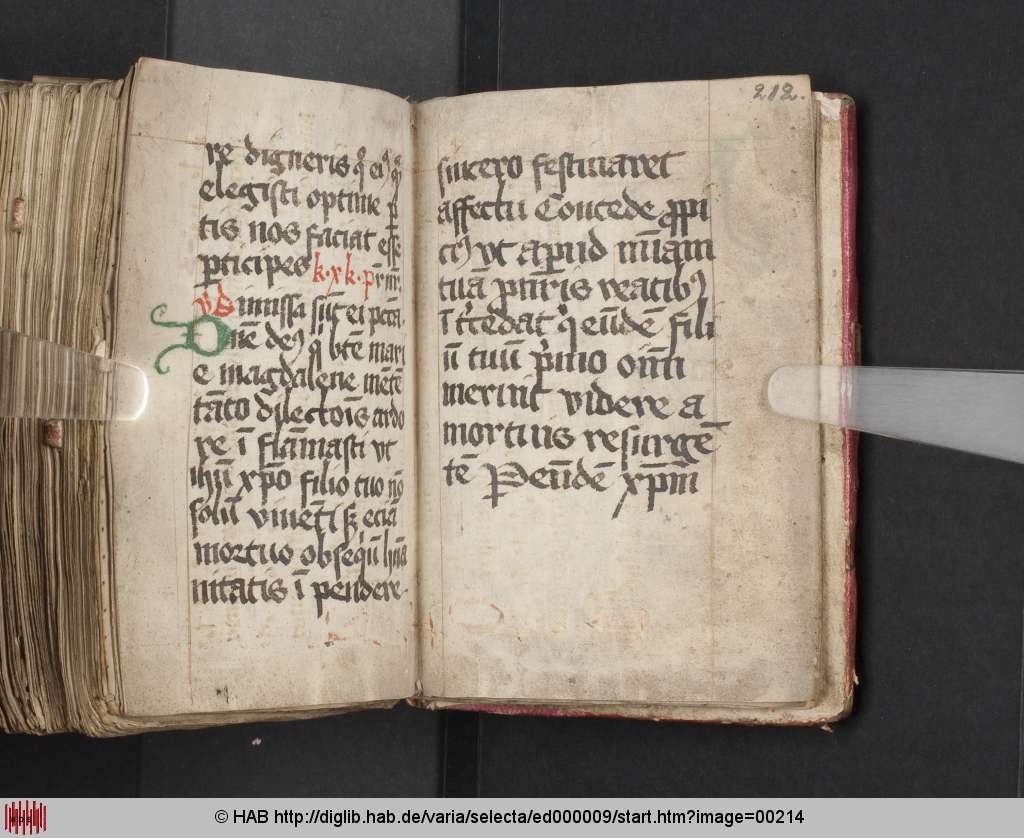 re digneris qͦ eiꝰ qͣ
elegisti optime p̄
tis nos faciat eſſe
ꝑticipes k · x k · prīr.
vs Dimissa sūt ei pctā.
Dn̄e deꝰ qͥ btē mari
e magdalene mētē
tāto dilectōis ardo
re ī flāmasti vt
ihū xp̄o filio tuo nō
solū viuēti sꝫ eciā
mortuo obseqͥū hūa
nitatis ī pendere
212.
sincero festinaret
affectu Concede ꝓpi
ciꝰ vt apud mīam
tuā ꝓ nr̄is reatibꝰ
ī t̄cedat qͥ eūdē fili
ū tuū pͥmo om̄i
merint videre a
mortuis resurgē
tē Peūdē xp̄m
© HAB http://diglib.hab.de/varia/selecta/ed000009/start.htm?image=00214